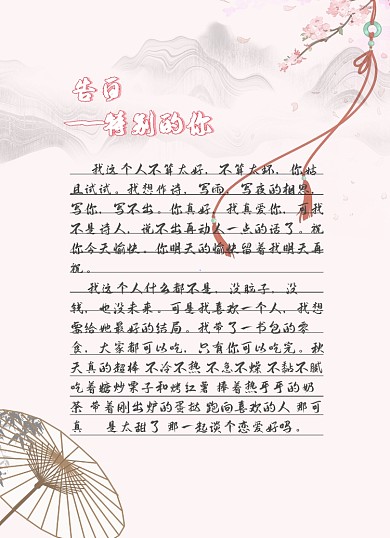 告白
——特别的你
我这个人不算太好，不算太坏，你姑
且试试。我想作诗，写雨，写夜的相思，
写你，写不出。你真好，我真爱你，可我
不是诗人，说不出再动人一点的话了。祝
你今天愉快，你明天的愉快留着我明天再
祝。
我这个人什么都不是，没脑子，没
钱，也没未来。可是我喜欢一个人，我想
要给她最好的结局。我带了一书包的零
食，大家都可以吃，只有你可以吃完。秋
天真的超棒 不冷不热 不急不燥 不黏不腻
吃着糖炒栗子和烤红薯 捧着热乎乎的奶
茶 带着刚出炉的蛋挞 跑向喜欢的人 那可
真 是太甜了 那一起谈个恋爱好吗。